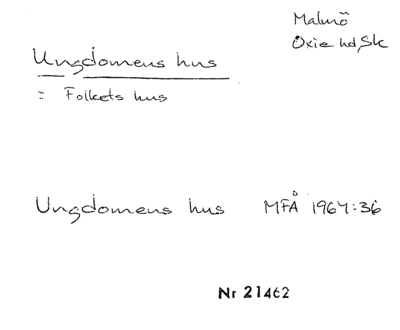 Malmö
Oxie hd, Sk
Ungdomens hus
= Folkets hus
Ungdomens hus MFÅ 1964:36
Nr 21462